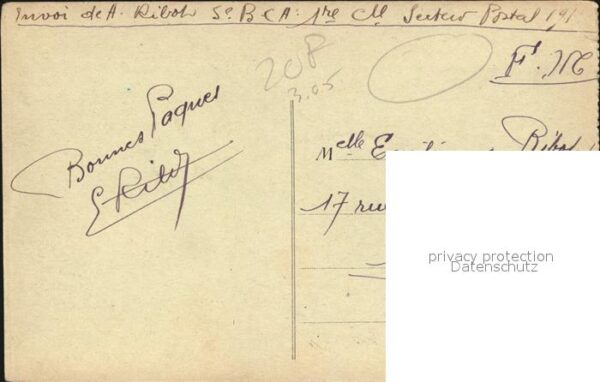 Envoi de A. Ribot 5e B.C.A. 1re Cie Secteur Postal 191
20P
3.05
F. M
Bonnes Paques
Ribot
Melle Ribot
17 rue
privacy protection
Datenschutz